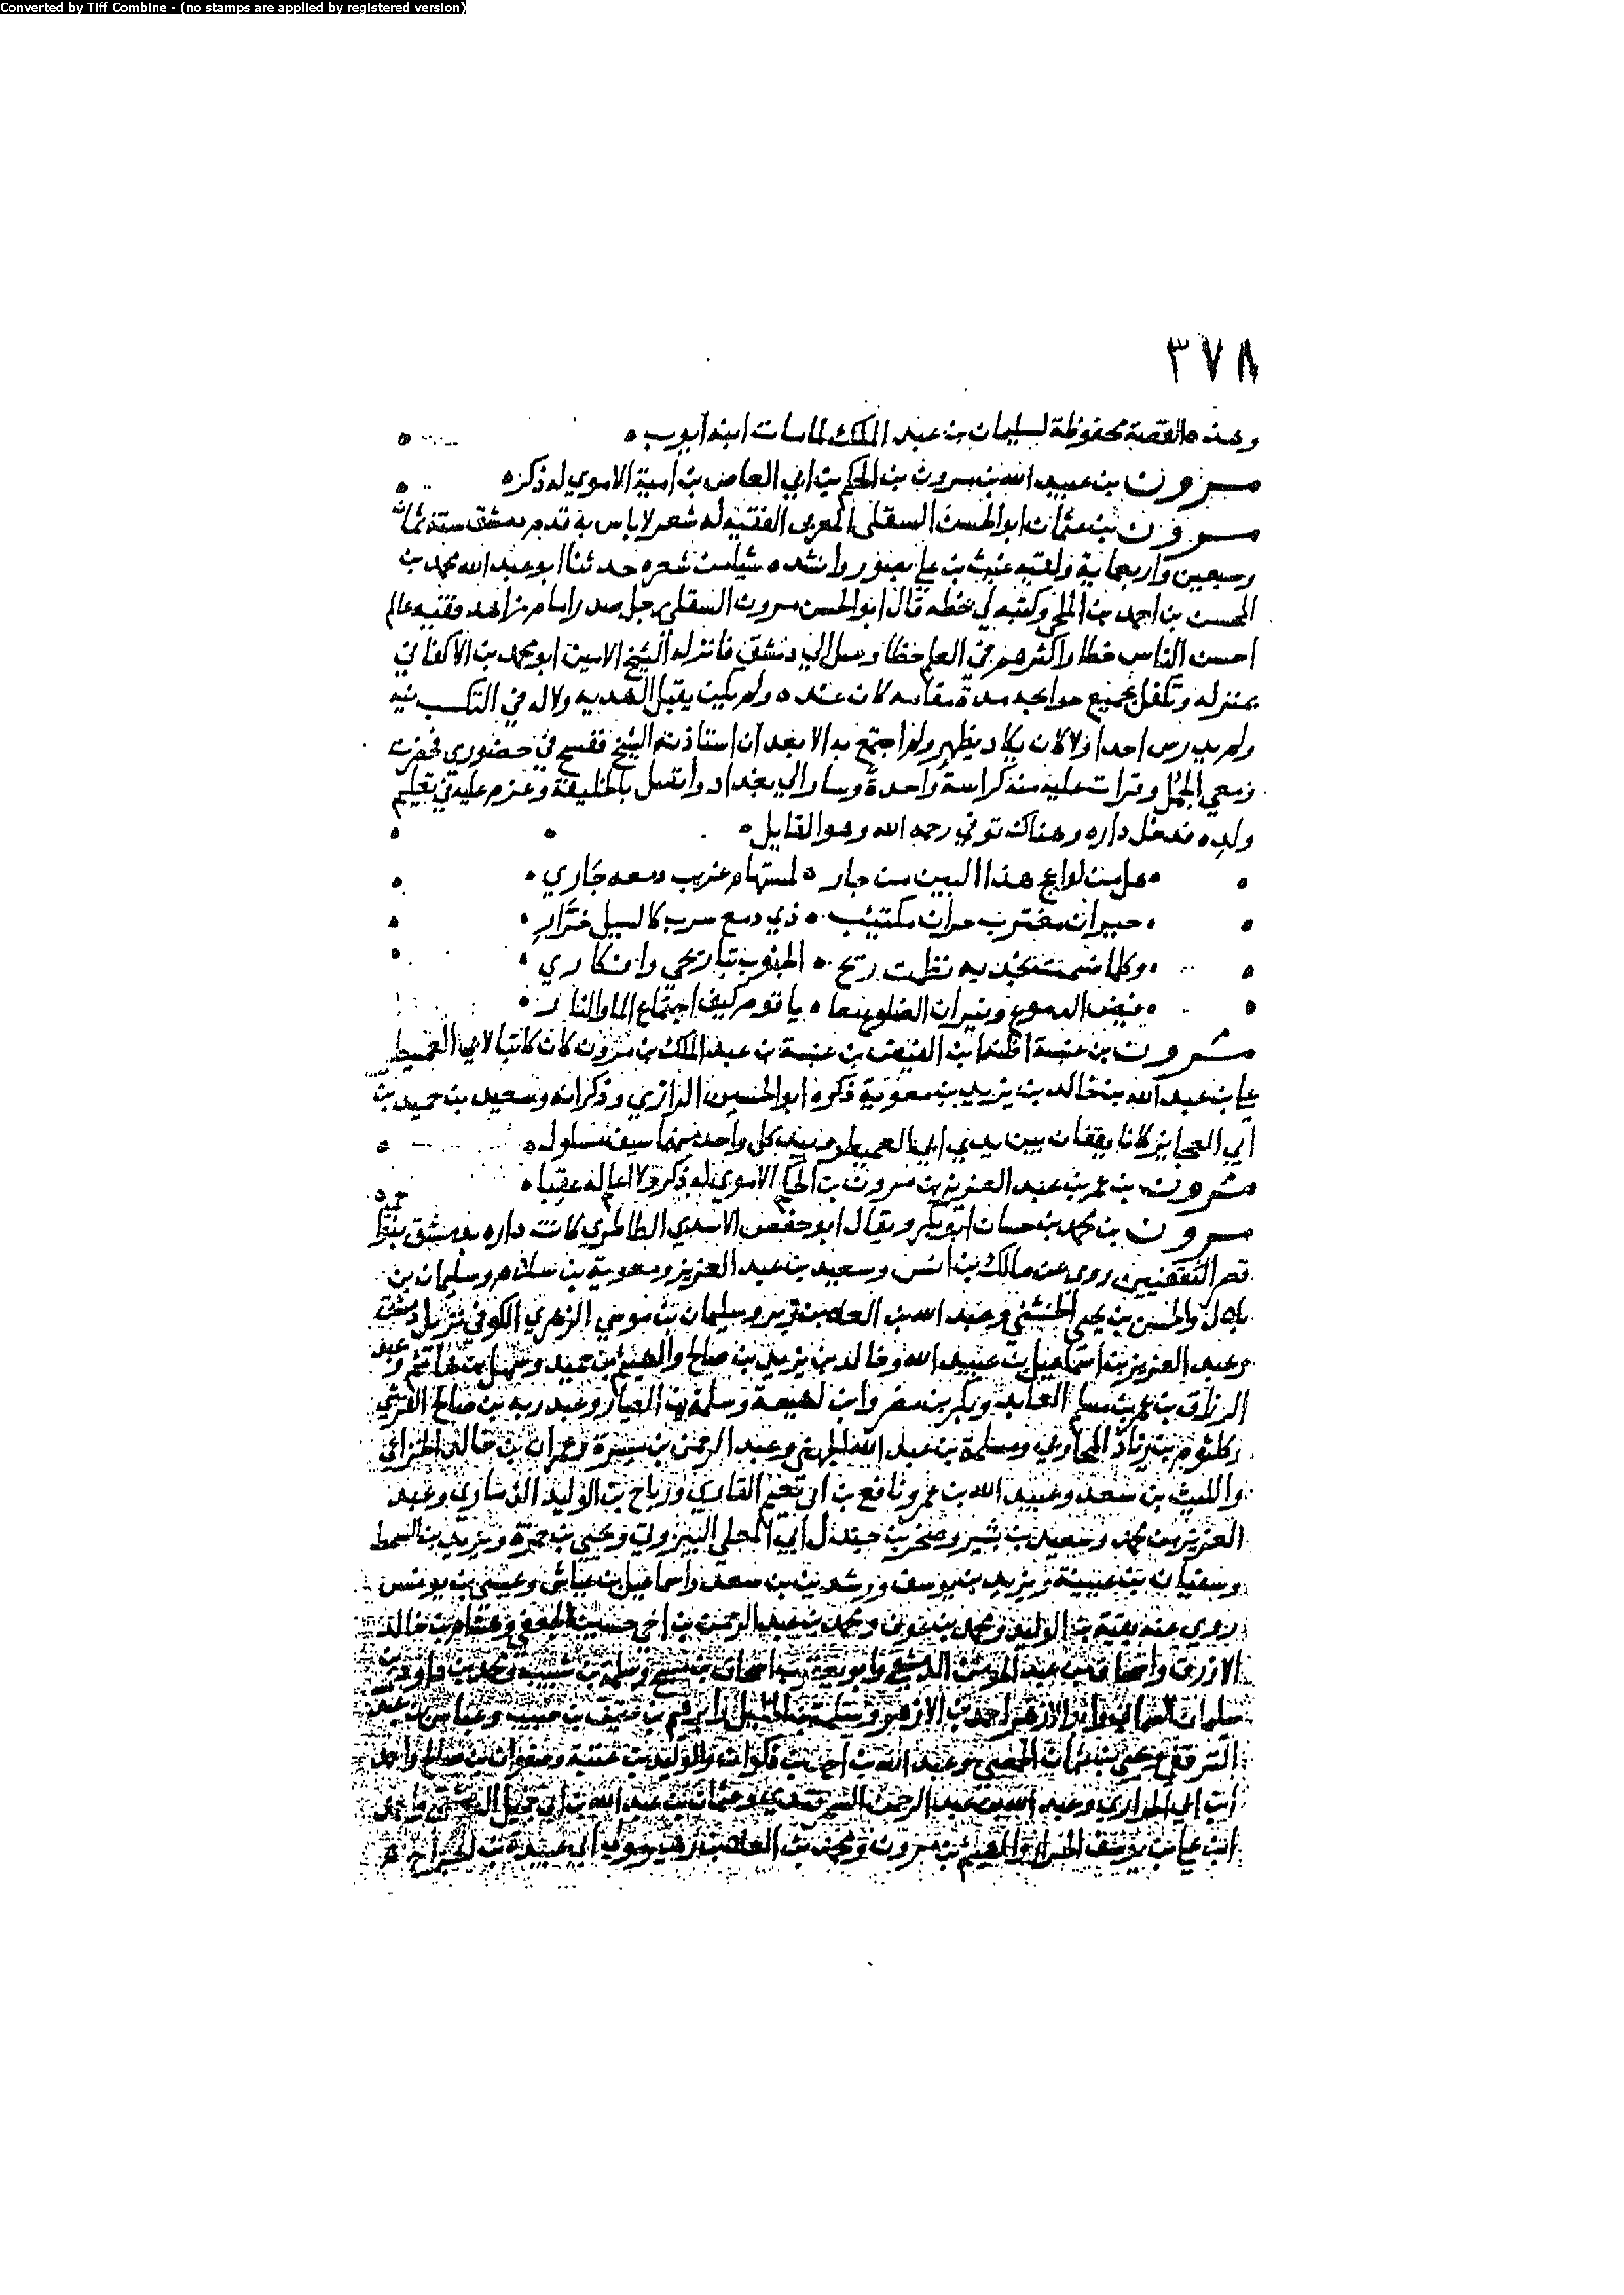 Converted by Tiff Combine - (no stamps are applied by registered version)
٣٧٨
وهذه القصة محفوظة لسليمان بن عبد الملك لما مات ابنه ايوب ه
مرون بن عبيد الله بن مرون بن الحكم بن ابي العاص بن امية الاموي له ذكر ه
مرون بن عثمان ابو الحسن السقلي المغربي الفقيه له شعر لا باس به قدم دمشق سنة ثمان
وسبعين واربعماية ولقيه غيث بن علي بصور وانشده شيا من شعره حدثنا ابو عبد الله محمد بن
المحسن بن احمد بن الملحي وكتبه لي بخطه قال ابو الحسن مرون السقلي رجل صدر امام زاهد فقيه عالم
احسن الناس خطا واكثرهم من العلم حظا وصل الي دمشق فانزله الشيخ الامين ابو محمد بن الاكفاني
بمنزله وتكفل بجميع حوايجه مدة مقامه كان عنده ولم يكن يقبل الهديه ولا له في التكسب نيه
ولم يدرس احدا ولا كان يكاد يظهر ولم اجتمع به الا بعد ان استاذنه الشيخ ففسح في حضوري فحضرت
ومعي الجمل وقرات عليه منه كراسة واحدة وسار الي بغداد واتصل بالخليفة وعزم عليه في تعليم
ولده فدخل داره وهناك توفي رحمه الله وهو القايل ه
هل من لواعج هذا البين من جار ه لمستهام غريب دمعه جاري
حيران مغترب حران مكتيب ه ذي دمع سرب كالسيل خرار
وكلما شمت نجديه نظمت ريح ه الجنوب تباريحي وافكاري
فيض الدموع ونيران الضلوع معا ه يا قوم كيف اجتماع الما والنار
مرون بن عنبسة اظنه ابن الفيض بن عنبسة بن عبد الملك بن مرون كان كاتبا لابي العميطر
علي بن عبد الله بن خالد بن يزيد بن معوية ذكره ابو الحسين الرازي وذكر انه وسعيد بن حميد بن
ابي العجايز كانا يقفان بين يدي ابي العميطر وبيد كل واحد منهما سيف مسلول ه
مرون بن عمر بن عبد العزيز بن مرون بن الحكم الاموي له ذكر ولا اعلم له عقبا ه
مرون بن محمد بن حسان ابو بكر ويقال ابو حفص الاسدي الطاطري كانت داره بدمشق
قصر الثقفيين روى عن مالك بن انس وسعيد بن عبد العزيز ومعوية بن سلام وسليمان بن
بلال والحسن بن يحيى الخشني وعبد الله بن العلا بن زبر وسليمان بن موسى الزهري الكوفي نزيل دمشق
وعبد العزيز بن اسماعيل بن عبيد الله وخالد بن يزيد بن صالح والهيثم بن حميد وسهل بن هاشم وعبد
الرزاق بن عمر بن مسلم العابد وبكر بن مضر وابن لهيعة وسلمة بن العيار وعبد ربه بن صالح القرشي
وكلثوم بن زياد المحاربي ومسلمة بن عبد الله الجهني وعبد الرحمن بن ميسرة وعمران بن خالد الخزاعي
والليث بن سعد وعبيد الله بن عمرو نافع بن ابي نعيم القاري ورباح بن الوليد الذماري وعبد
العزيز بن محمد وسعيد بن بشير وصخر بن جندل ابي المعلى البيروتي ويحيى بن حمزة ويزيد بن السمط
وسفيان بن عيينة ويزيد بن يوسف ورشدين بن سعد واسماعيل بن عياش وعيسى بن يونس
روي عنه بقية بن الوليد ومحمد بن عوف ومحمد بن عبد الرحمن بن اخي حسين الجعفي وهشام بن خالد
الازرق واسحاق بن عبد المومن الدمشقي وابو بن اسحاق بن وسلمة بن شبيب ومحمد بن
سليمان وابو الازهر احمد بن الازهر وسلمة بن الخليل بن وعباس بن عبد
الترقفي ويحيى بن عثمان الحمصي وعبد الله بن احمد بن ذكوان والوليد بن عتبة وصفوان بن صالح واحمد
ابن ابي الحواري وعبد الله بن عبد الرحمن السمرقندي وعثمان بن عبد الله بن ابي جميل
ابن علي بن يوسف الخراز والهيثم بن مرون ومحمد بن العلا بن زهير مولى ابي عبيدة بن الجراح